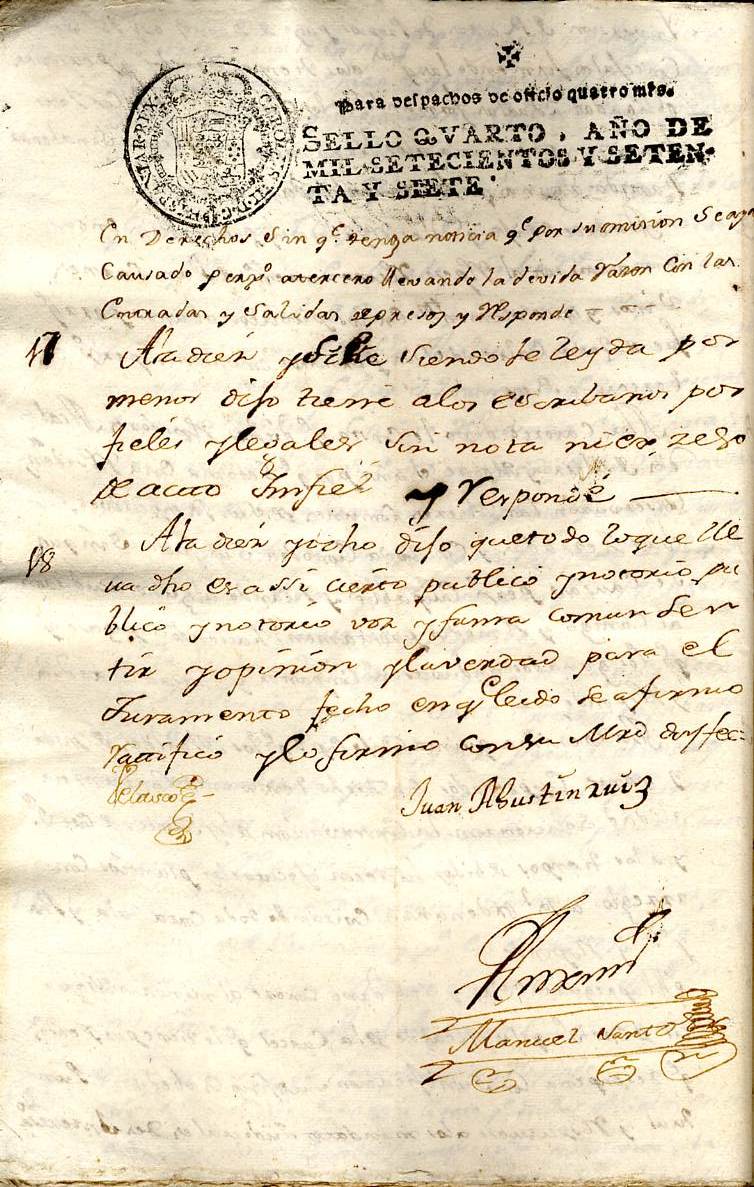 Para despachos de oficio quatro mrs.
SELLO QVARTO, AÑO DE
MIL SETECIENTOS Y SETEN-
TA Y SIETE.
CAROLVS III D G
HISPANIAR REX
En Derechos sin qe. tenga noticia qe. por su omision se aya
Causado perjo. a tercero llevando la devida razon con las
Entradas y Salidas de presos y responde
17 A la diez y siete siendole leyda por
menor dijo tiene a los escrivanos por
fieles y legales sin nota ni
de acto Infiel y responde
18 A la diez y ocho dijo que todo lo que lle
va dho es assi cierto publico y notorio pu
blico y notorio voz y fama comun sen
tir y opinion y la verdad para el
Juramento fecho en qe leido se afirmo
ratifico y lo firmo con su Mrd doy fee
Velasco
Juan Agustin ruiz
Antemi
Manuel Santos